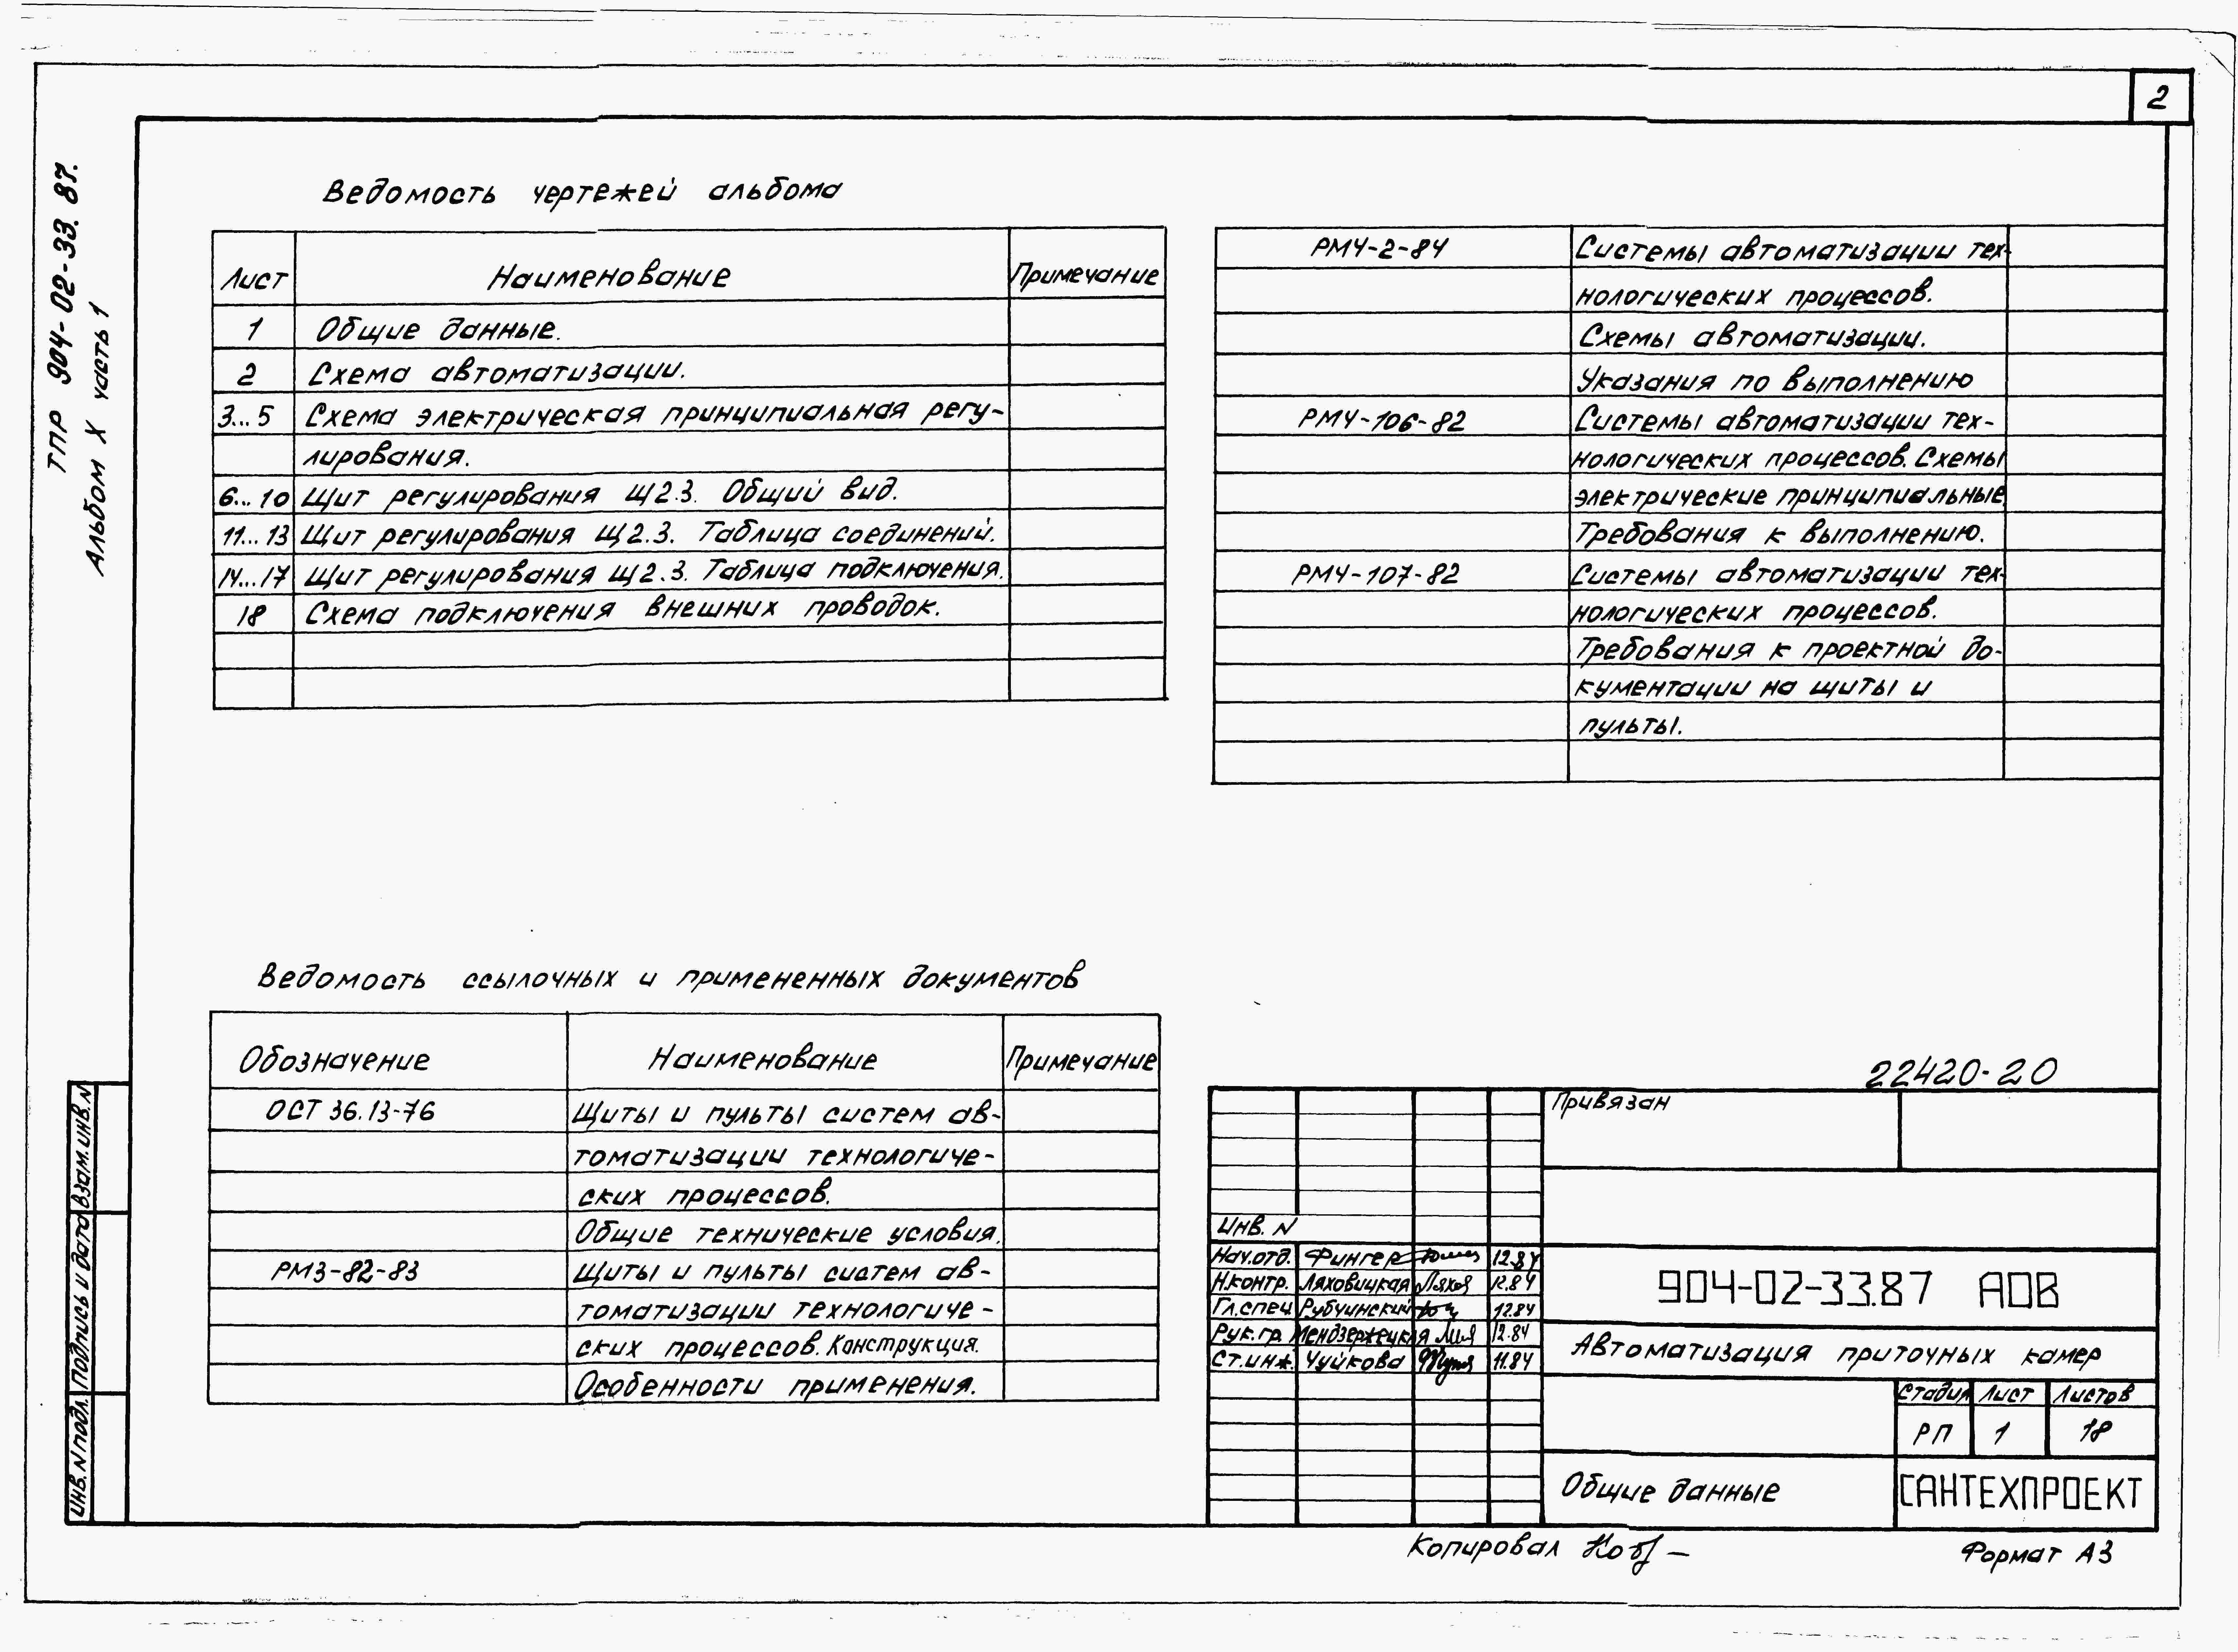 2
ТПР 904-02-33.87.
Альбом X часть 1
Ведомость чертежей альбома
Лист Наименование Примечание
1 Общие данные.
2 Схема автоматизации.
3...5 Схема электрическая принципиальная регу-
лирования.
6...10 Щит регулирования Щ2.3. Общий вид.
11...13 Щит регулирования Щ2.3. Таблица соединений.
14...17 Щит регулирования Щ2.3. Таблица подключения.
18 Схема подключения внешних проводок.
РМ4-2-84 Системы автоматизации тех-
нологических процессов.
Схемы автоматизации.
Указания по выполнению
РМ4-106-82 Системы автоматизации тех-
нологических процессов. Схемы
электрические принципиальные.
Требования к выполнению.
РМ4-107-82 Системы автоматизации тех-
нологических процессов.
Требования к проектной до-
кументации на щиты и
пульты.
Ведомость ссылочных и примененных документов
Обозначение Наименование Примечание
ОСТ 36.13-76 Щиты и пульты систем ав-
томатизации технологиче-
ских процессов.
Общие технические условия.
РМ3-82-83 Щиты и пульты систем ав-
томатизации технологиче-
ских процессов. Конструкция.
Особенности применения.
22420-20
Привязан
Инв. N
Нач.отд. Фингер 12.84
Н.контр. Ляховицкая 12.84
Гл.спец Рубчинский 12.84
Рук.гр. Мендзержецкая 12.84
Ст.инж. Чуйкова 11.84
904-02-33.87 АОВ
Автоматизация приточных камер
Стадия Лист Листов
РП 1 18
Общие данные
САНТЕХПРОЕКТ
Копировал
Формат А3
Взам. инв. N
Подпись и дата
Инв. N подл.